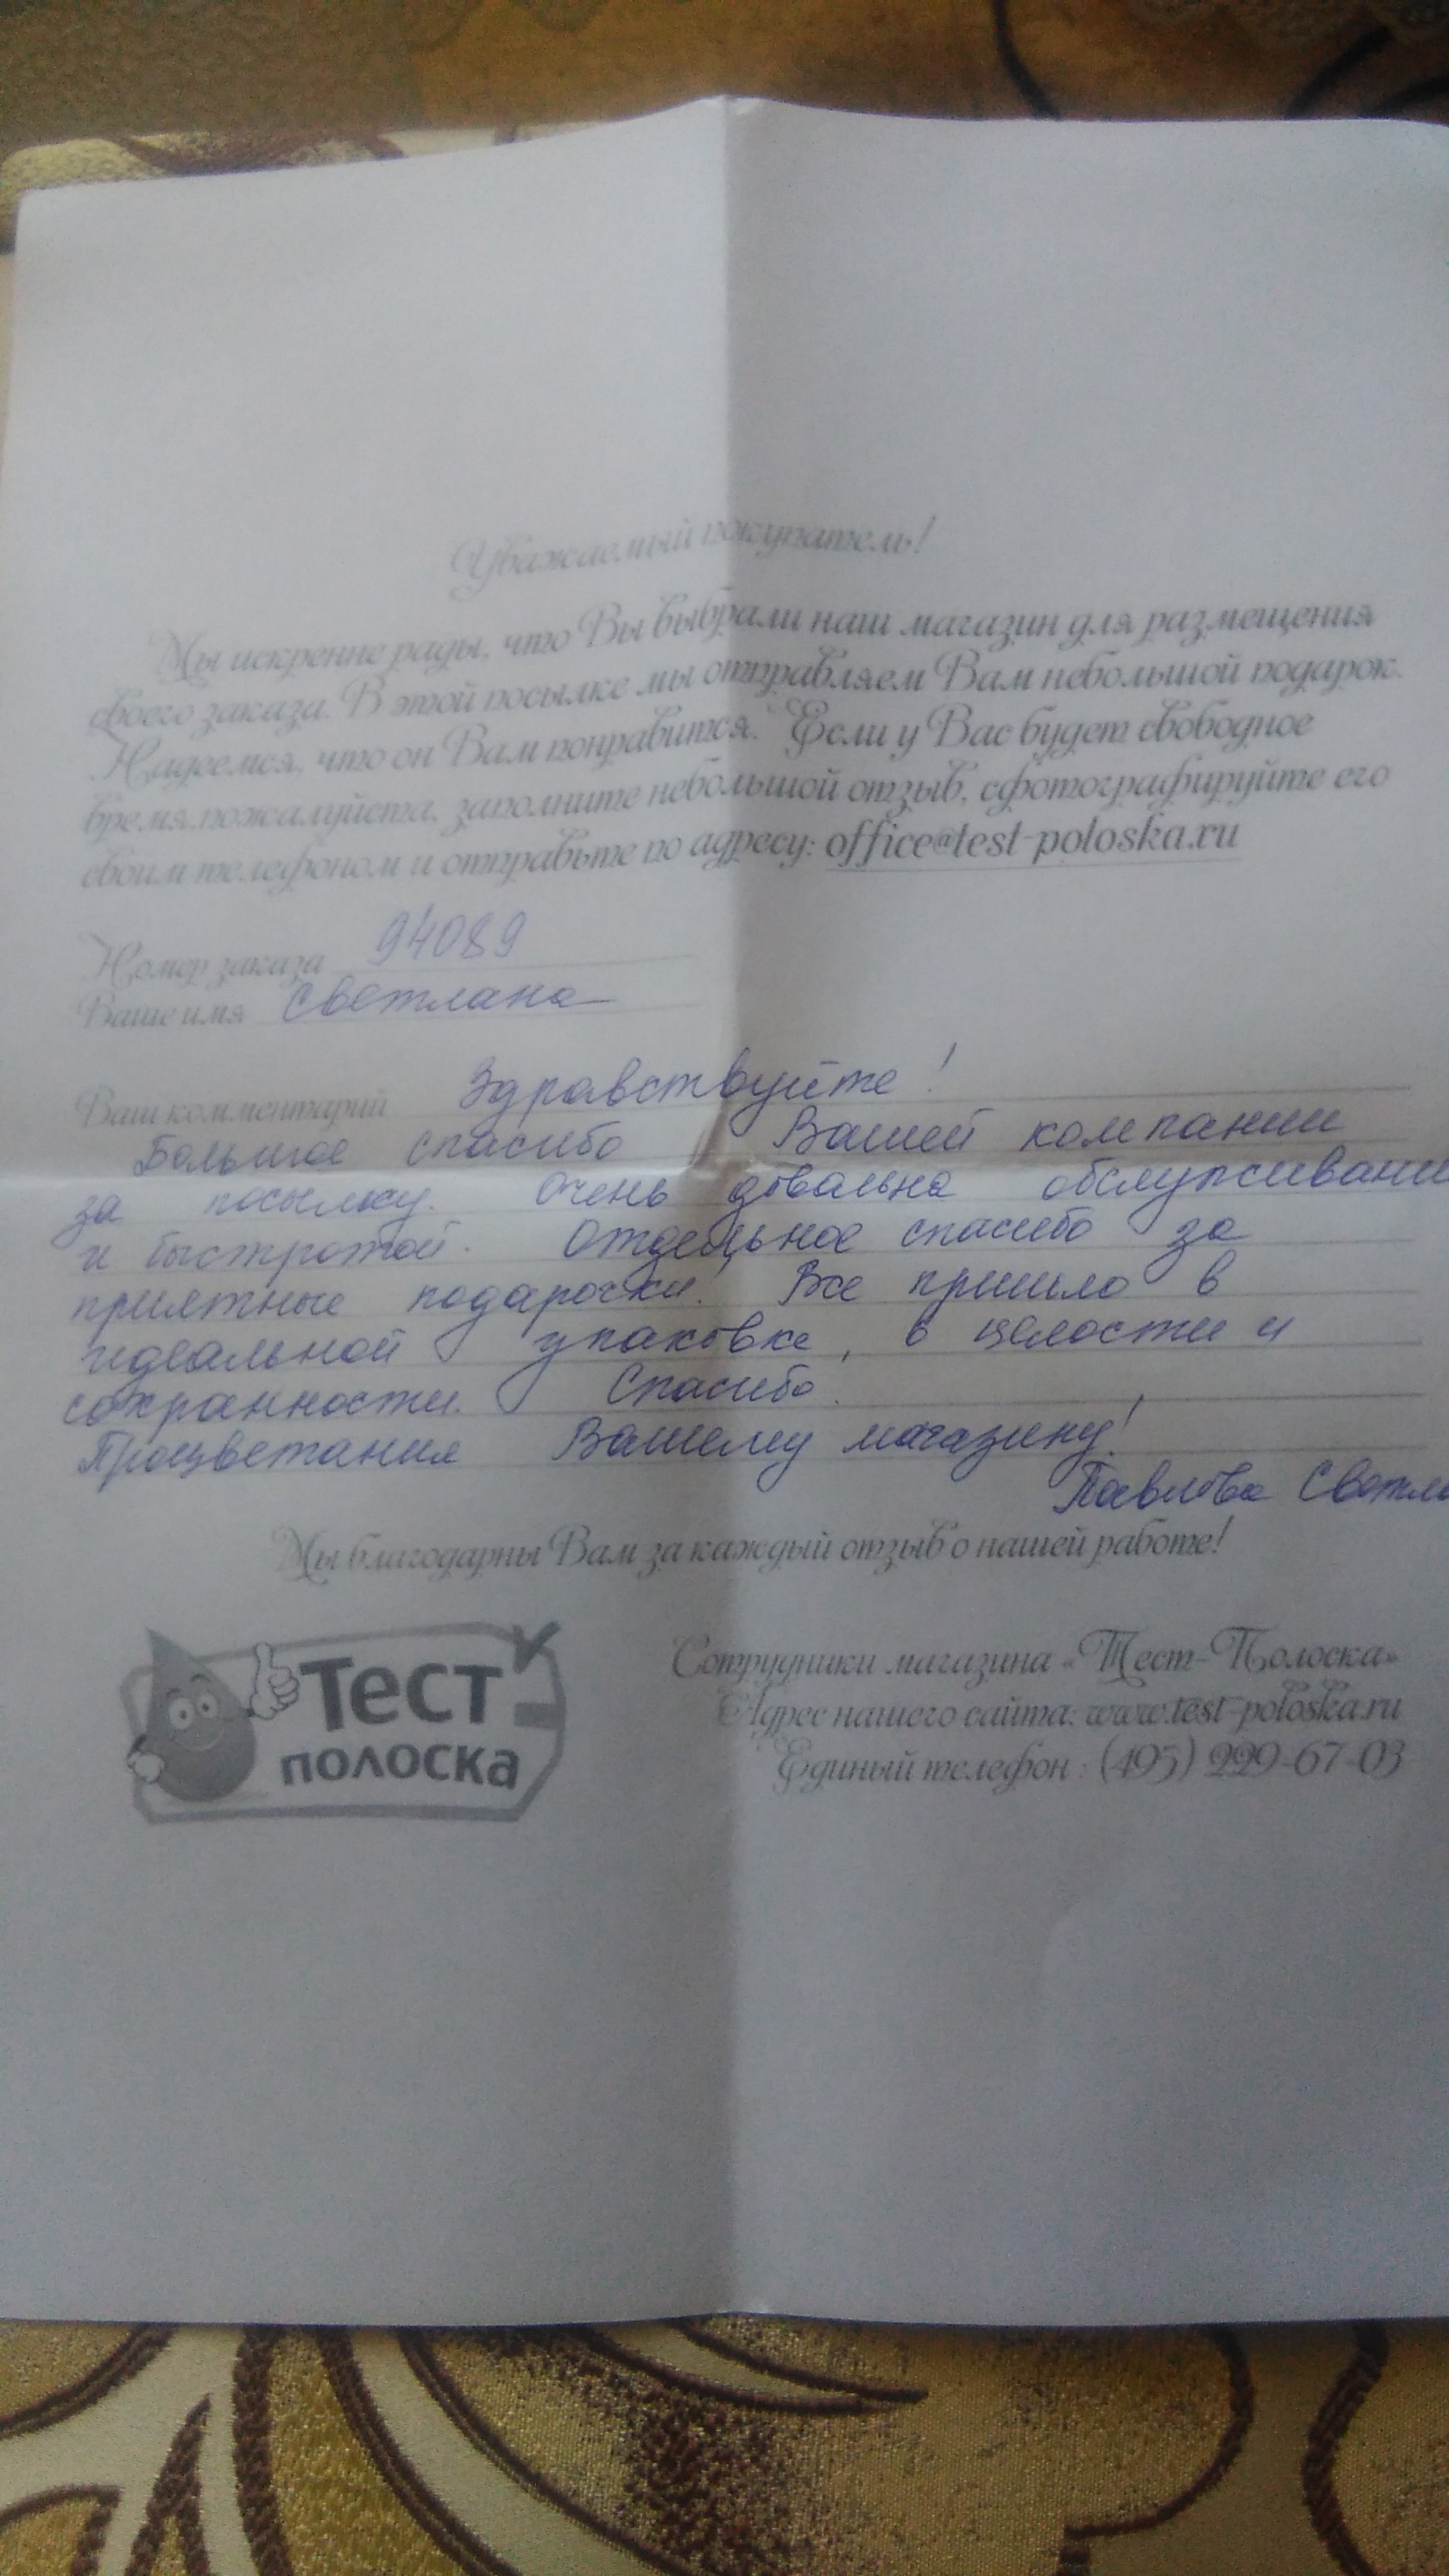 Уважаемый покупатель!
Мы искренне рады, что Вы выбрали наш магазин для размещения
своего заказа. В этой посылке мы отправляем Вам небольшой подарок.
Надеемся, что он Вам понравится. Если у Вас будет свободное
время, пожалуйста, заполните небольшой отзыв, сфотографируйте его
своим телефоном и отправьте по адресу: office@test-poloska.ru
Номер заказа 94089
Ваше имя Светлана
Ваш комментарий Здравствуйте!
Большое спасибо Вашей компании
за посылку. Очень довольна обслуживани
и быстротой. Отдельное спасибо за
приятные подарочки! Все пришло в
идеальной упаковке, в целости и
сохранности. Спасибо.
Процветания Вашему магазину!
Павлова Светла
Мы благодарны Вам за каждый отзыв о нашей работе!
Тест
полоска
Сотрудники магазина «Тест-Полоска»
Адрес нашего сайта: www.test-poloska.ru
Единый телефон : (495) 229-67-03